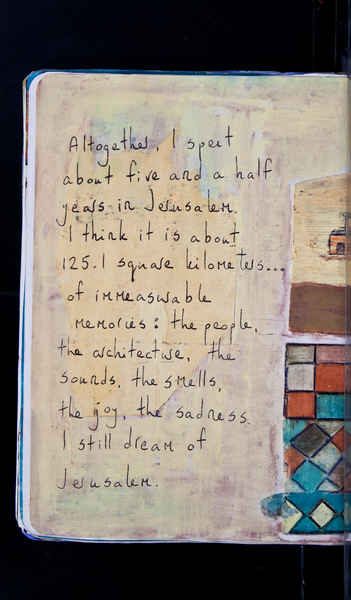 Altogether, I spent
about five and a half
years in Jerusalem.
I think it is about
125.1 square kilometers...
of immeasurable
memories: the people,
the architecture, the
sounds, the smells,
the joy, the sadness.
I still dream of
Jerusalem.